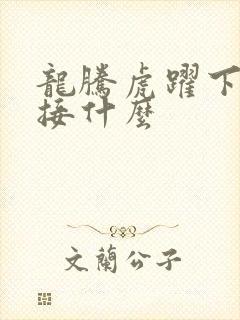 龍騰虎躍下
接什麼
文蘭公子